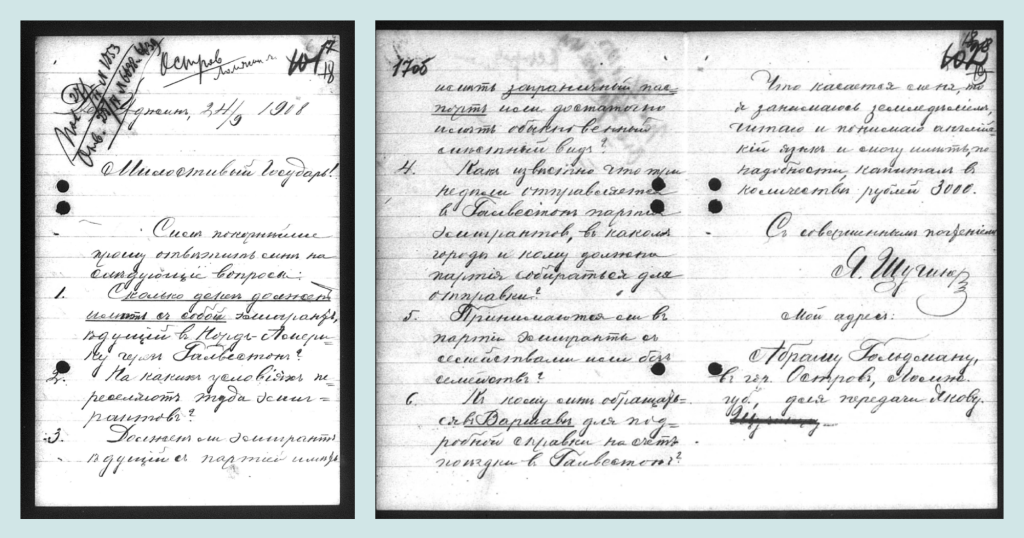 Остров
Ломжинс.
101
17
18
24/9 1908
Милостивый Государь!
Симъ покорнѣйше
прошу отвѣтить мнѣ на
слѣдующіе вопросы:
1. Сколько денегъ долженъ
имѣть съ собой эмигрантъ,
ѣдущій въ Нордъ-Амери-
ку черезъ Галвестонъ?
2. На какихъ условіяхъ пе-
реселяютъ туда эмиг-
рантовъ?
3. Долженъ ли эмигрантъ
ѣдущій съ партіей имѣть
17об
имѣть заграничный пас-
портъ или достаточно
имѣть обыкновенный
мѣстный видъ?
4. Какъ извѣстно что три
недѣли отправляется
въ Галвестонъ партія
эмигрантовъ, въ какомъ
городѣ и кому должна
партія собираться для
отправки?
5. Принимаются ли въ
партіи эмигранты съ
семействами или безъ
семействъ?
6. Къ кому мнѣ обращать-
ся въ Варшавѣ для под-
робной справки на счетъ
поѣздки въ Галвестонъ?
Что касается меня, то
я занимаюсь земледѣліемъ,
читаю и понимаю англій-
скій языкъ и смогу имѣть, по
надобности, капиталъ въ
количествѣ рублей 3000.
Съ совершеннымъ почтеніемъ
Я.
Мой адресъ:
Абраму Гольдману,
въ гор. Островъ, Ломж.
губ., для передачи Якову.